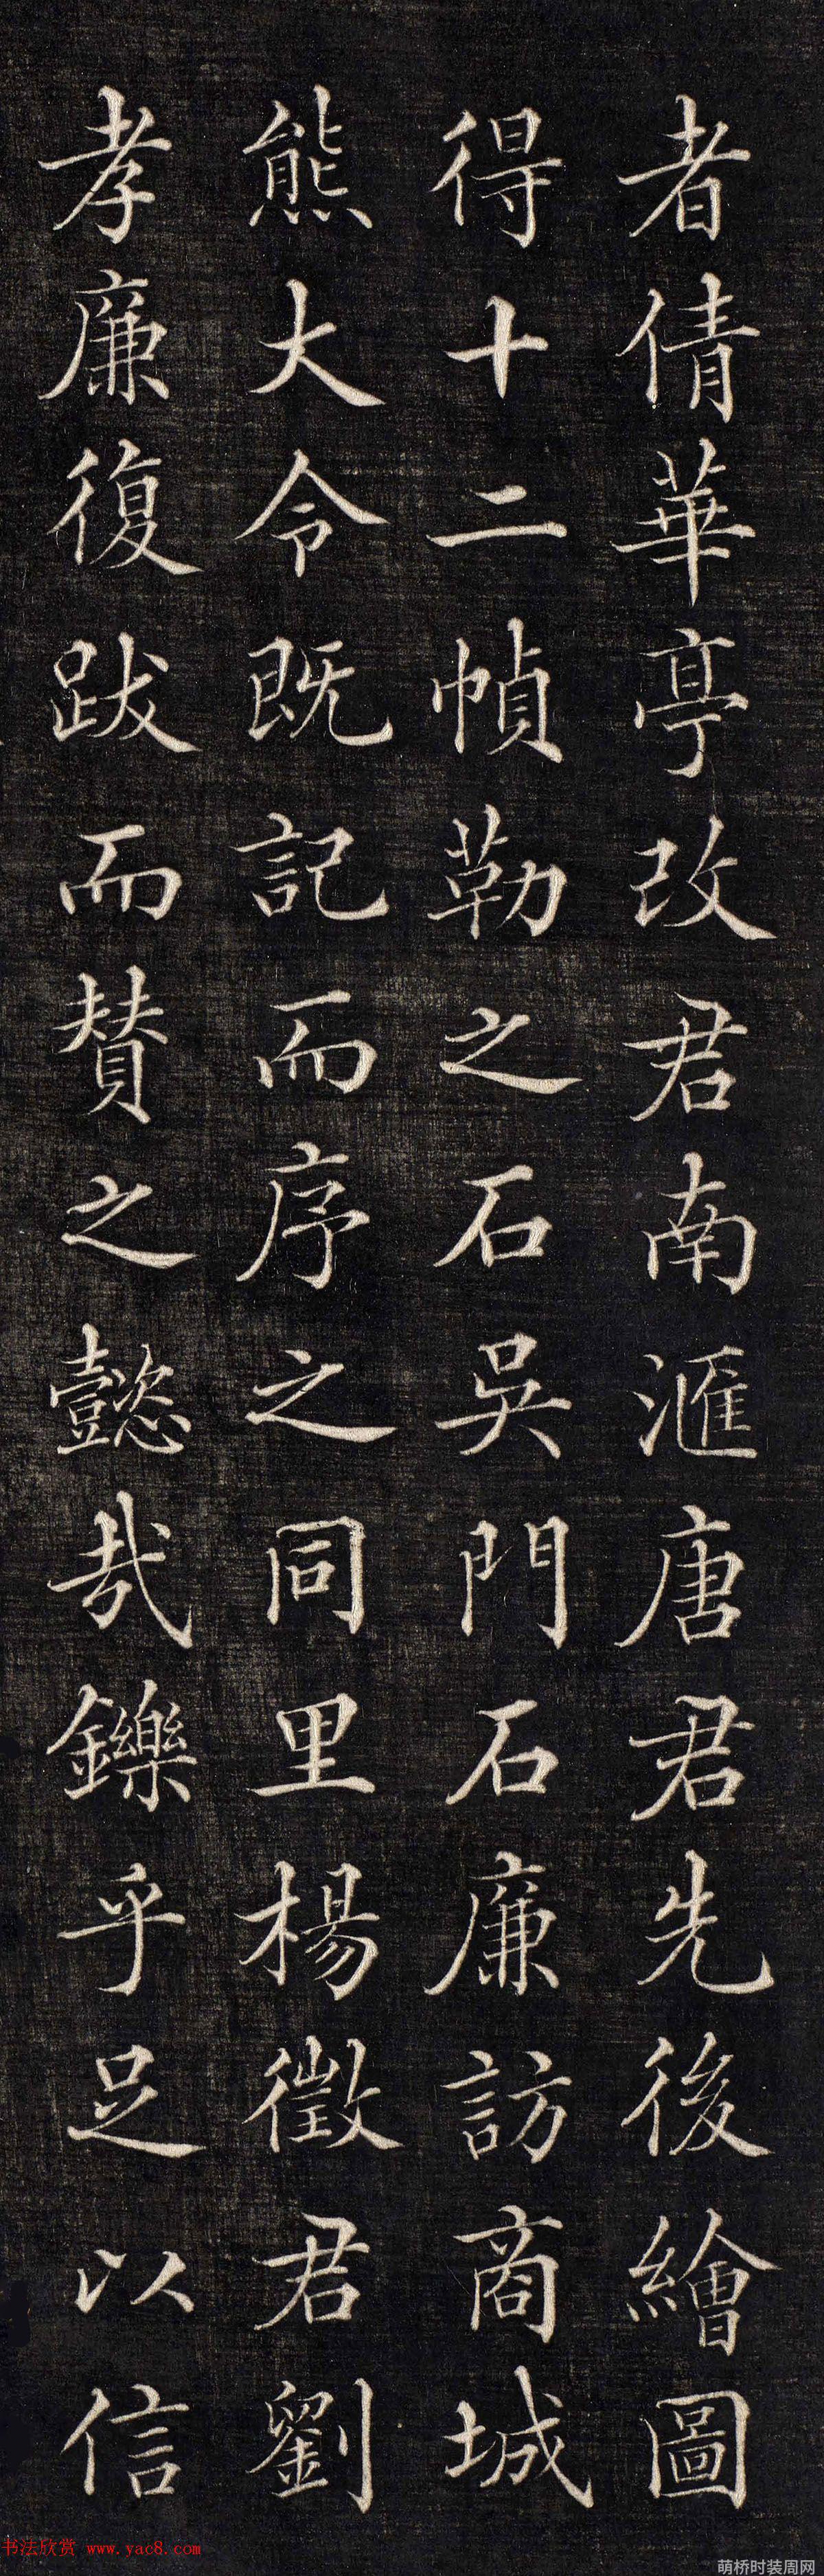 者倩華亭改君南滙唐君先後繪圖
得十二幀勒之石吳門石廉訪商城
熊大令既記而序之同里楊徵君劉
孝廉復跋而賛之懿哉鑠乎足以信
书法欣赏 www.yac8.com
萌桥时装周网